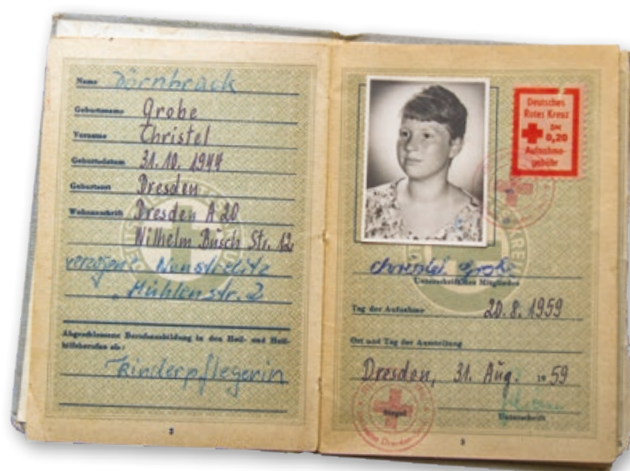 Name Dörnbrack
Geburtsname Grobe
Vorname Christel
Geburtsdatum 31. 10. 1944
Geburtsort Dresden
Wohnanschrift Dresden A 20
Wilhelm Busch Str. 12
verzogen: Neustrelitz
Mühlenstr. 2
Abgeschlossene Berufsausbildung in den Heil- und Heil-
hilfsberufen als:
Kinderpflegerin
2
Deutsches
Rotes Kreuz
DM
0,20
Aufnahme-
gebühr
Christel Grobe
Unterschrift des Mitgliedes
Tag der Aufnahme 20. 8. 1959
Ort und Tag der Ausstellung
Dresden, 31. Aug. 1959
Siegel
Unterschrift
3